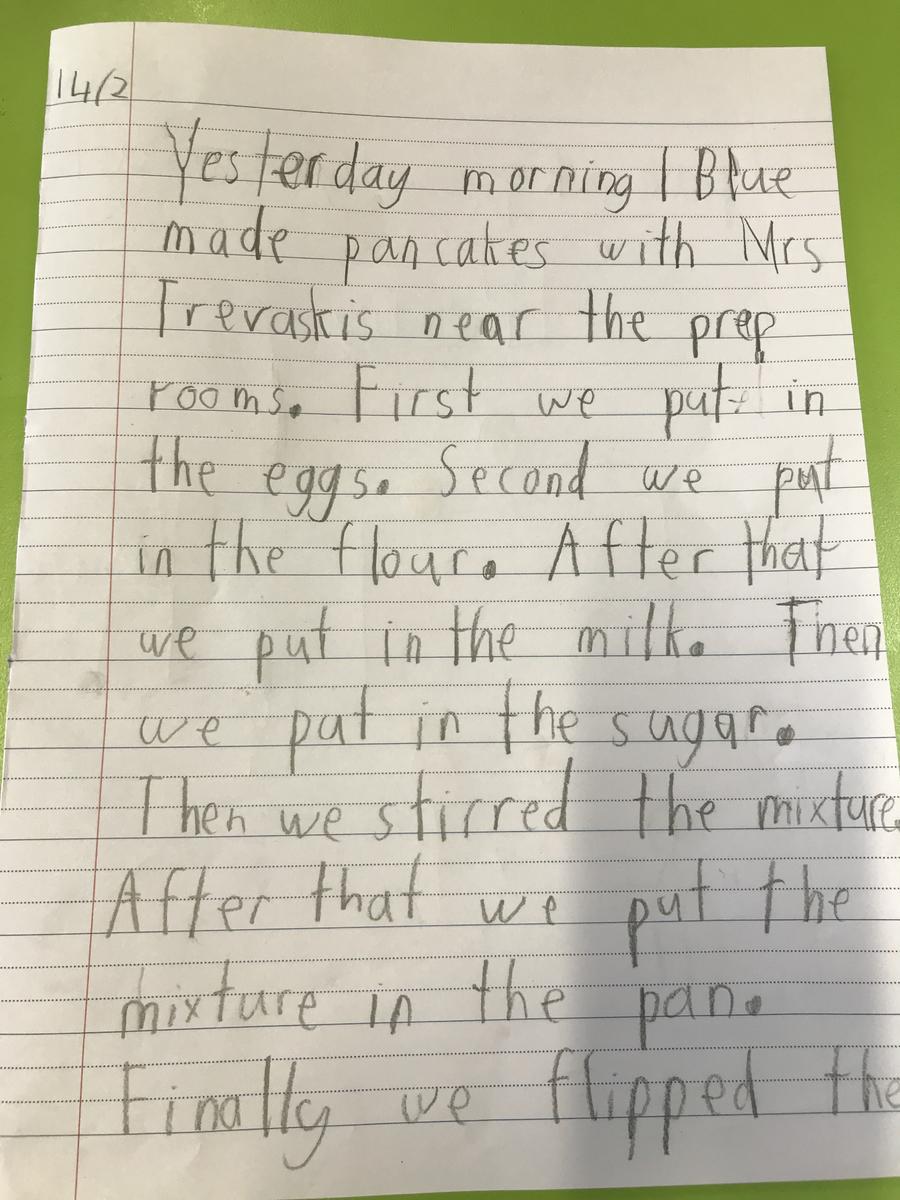 14/2
Yesterday morning 1 Blue
made pancakes with Mrs
Trevaskis near the prep
rooms. First we put in
the eggs. Second we put
in the flour. After that
we put in the milk. Then
we put in the sugar.
Then we stirred the mixture.
After that we put the
mixture in the pan.
Finally we flipped the